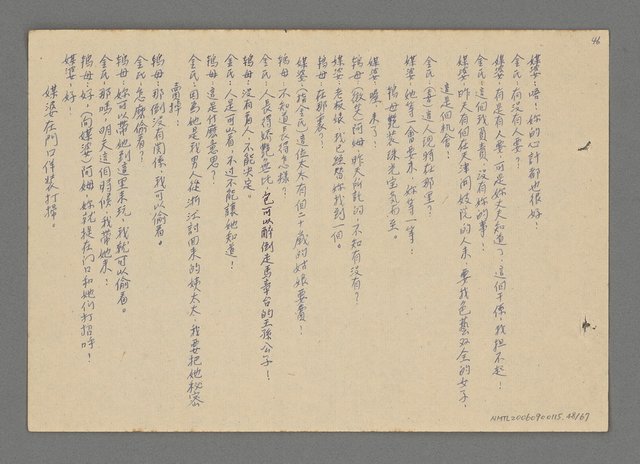 46
媒婆：唔！妳的心計都也很好！
金氏：有沒有人要？
媒婆：有是有人要，可是妳丈夫知道了，這個干係，我担不起！
金氏：這個我負責，沒有妳的事！
媒婆：昨天有個在天津開妓院的人來，要找色藝双全的女子，
這是個机會！
金氏：(喜)這人現時在那里？
媒婆：她等一會要來，妳等一等！
鴇母艷裝珠光宝氣而至。
媒婆：噯！來了！
鴇母：(微笑)阿姆！昨天所託的，不知有沒有？
媒婆：老板娘，我已經替妳找到一個。
鴇母：在那裏？
媒婆：(指金氏)這位太太有個二十歲的姑娘要賣！
鴇母：不知道長得怎樣？
金氏：人長得嬌艷無比，包可以醉倒走馬章台的王孫公子！
鴇母：沒有看人，不能決定。
金氏：人是可以看，不过不能讓她知道！
鴇母：這是什麼意思？
金氏：因為她是我男人從浙江討回來的姨太太，我要把她秘密
賣掉！
鴇母：那倒沒有関係，我可以偷看。
金氏：怎麼偷看？
鴇母：妳可以帶她到這里來玩，我就可以偷看。
金氏：那嗎，明天這個時候，我帶她來！
鴇母：好，(向媒婆)阿姆，妳就從在门口和她们打招呼！
媒婆：好！
媒婆在門口佯裝打掃。
NMTL20060900115.48/67